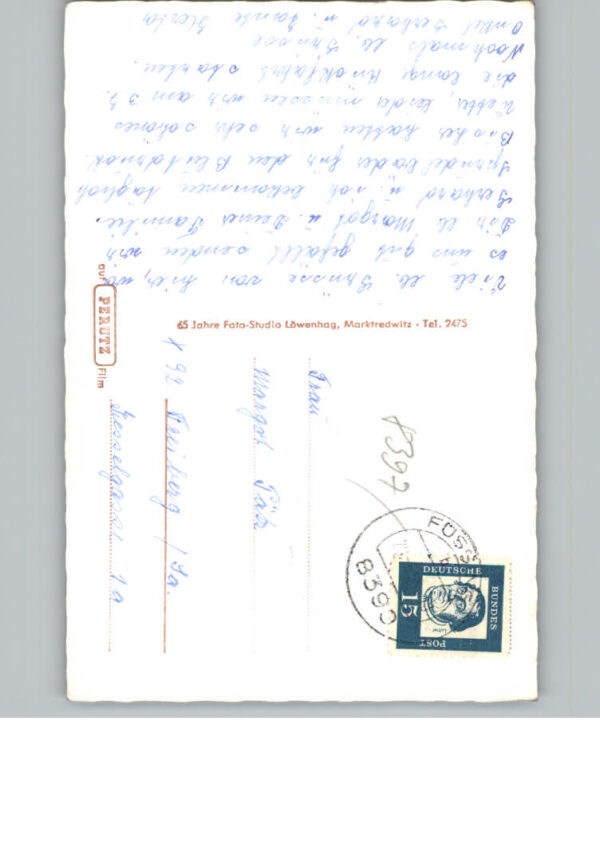 Viele lb. Grüsse von hier, wo
es uns gut gefällt senden wir
Dir lb. Margot u. Deiner Familie.
Gerhard u. ich bekommen täglich
Sprudelbäder für den Blutdruck.
Bisher hatten wir sehr schönes
Wetter, leider müssen wir am
die lange Rückfahrt starten.
Nochmals lb. Grüsse
Onkel Gerhard u. Tante Herta
65 Jahre Foto-Studio Löwenhag, Marktredwitz · Tel. 2475
auf PERUTZ Film
Frau
Margot
X 92 Freiberg /Sa.
Kesselgasse
8397
8390
FÜSS
DEUTSCHE
BUNDES
POST
15
Luther